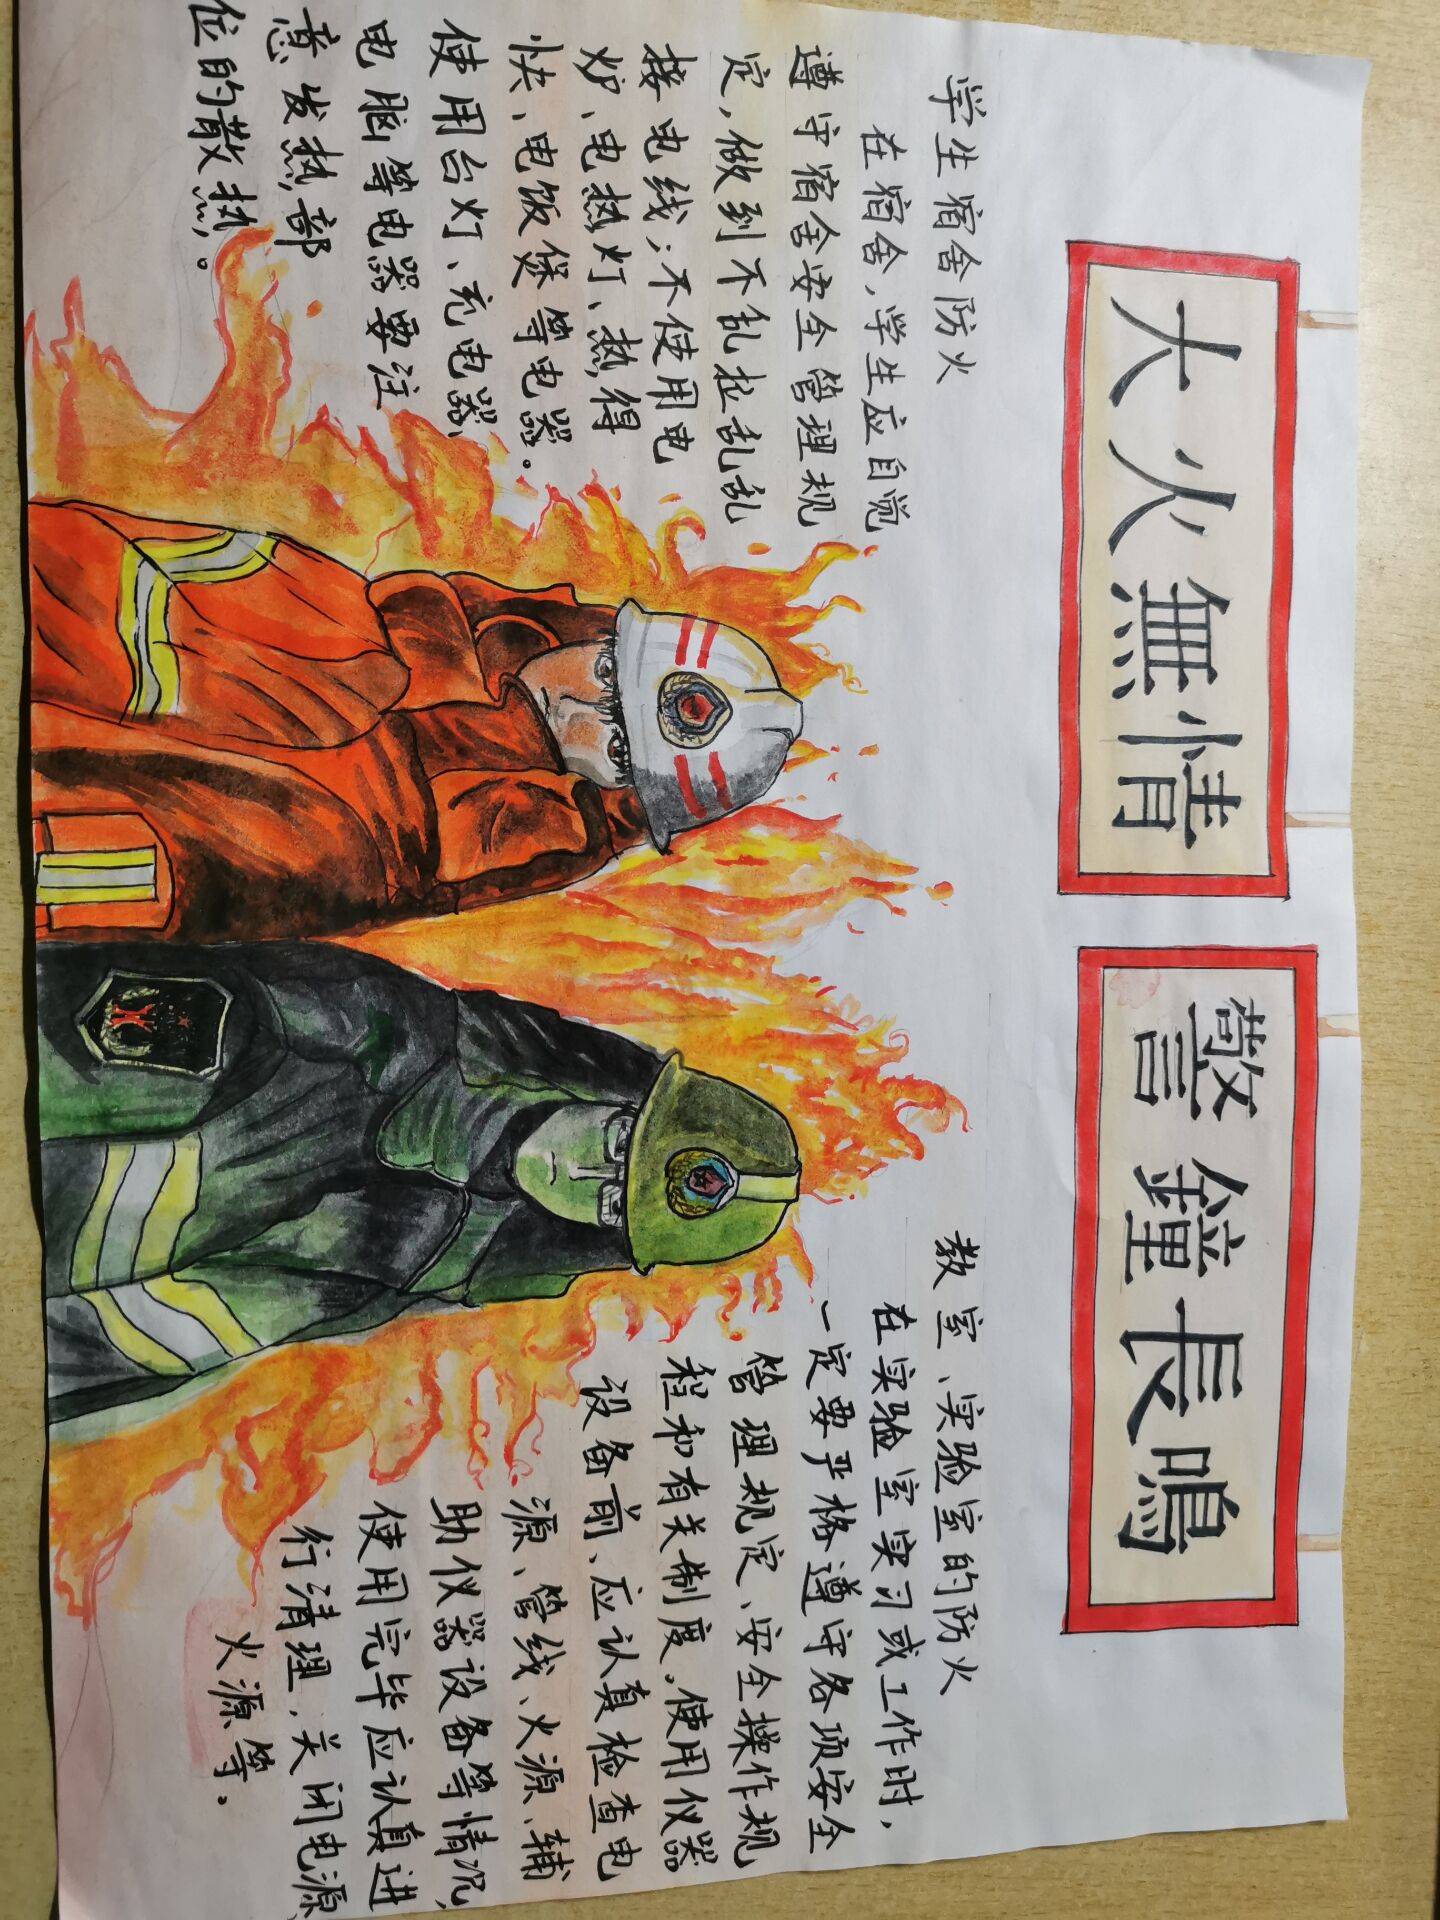 大火無情
警鐘長鳴
学生宿舍防火
在宿舍,学生应自觉
遵守宿舍安全管理规
定,做到不乱拉乱乱
接电线;不使用电
炉、电热灯、热得
快、电饭煲等电器。
使用台灯、充电器、
电脑等电器要注
意发热部
位的散热。
教室、实验室的防火
在实验室实习或工作时,
一定要严格遵守各项安全
管理规定、安全操作规
程和有关制度。使用仪器
设备前、应认真检查电
源、管线、火源、辅
助仪器设备等情况,
使用完毕应认真进
行清理,关闭电源、
火源等。